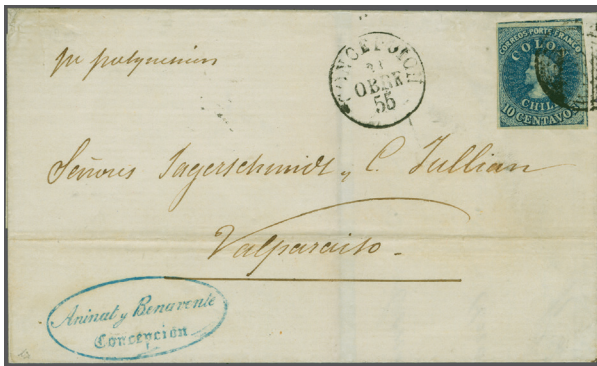 pr polynesien
CONCEPCION
21
OBRE
55
CORREOS PORTE FRANCO
COLON
CHILE
10 CENTAVOS
Señores Jagerschmidt y C. Jullian
Valparaiso
Aninat y Benavente
Concepcion